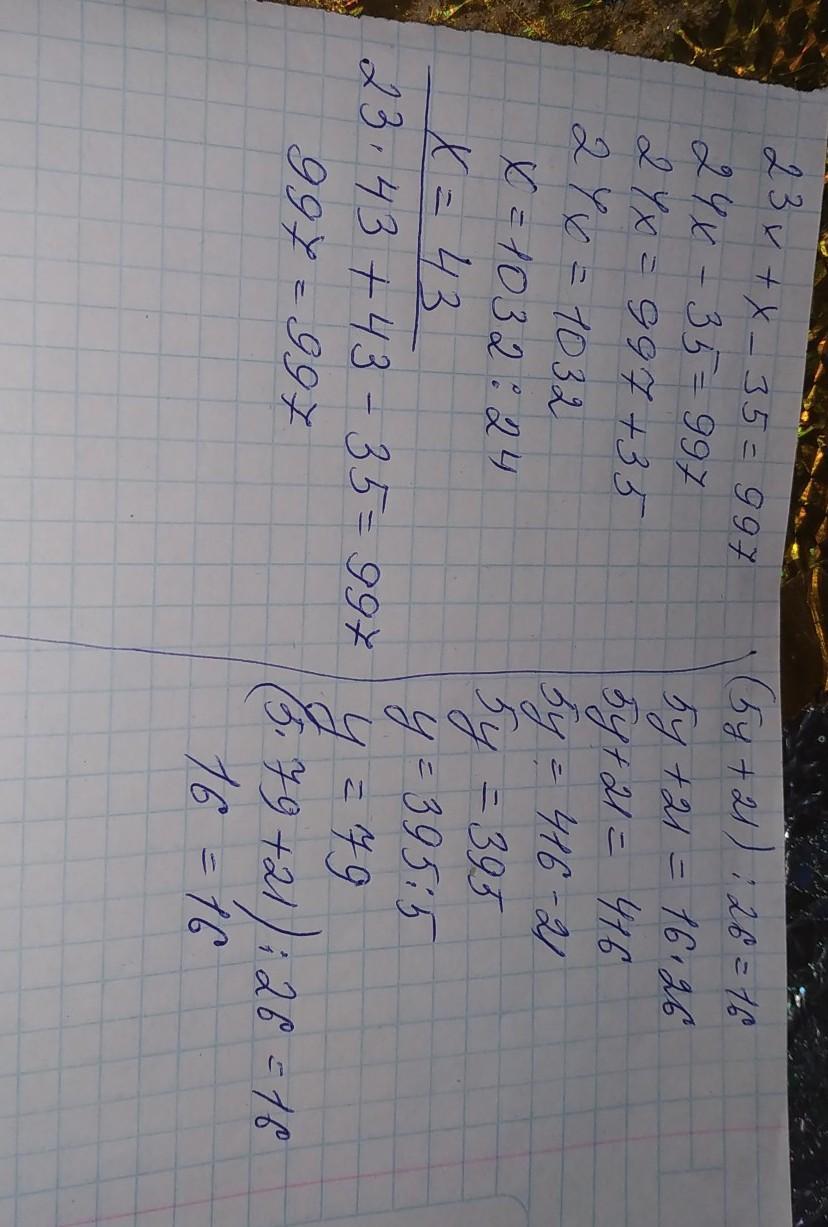 23x + x - 35 = 997
24x - 35 = 997
24x = 997 + 35
24x = 1032
x = 1032 : 24
x = 43
23 · 43 + 43 - 35 = 997
997 = 997
(5y + 21) : 26 = 16
5y + 21 = 16 · 26
5y + 21 = 416
5y = 416 - 21
5y = 395
y = 395 : 5
y = 79
(5 · 79 + 21) : 26 = 16
16 = 16